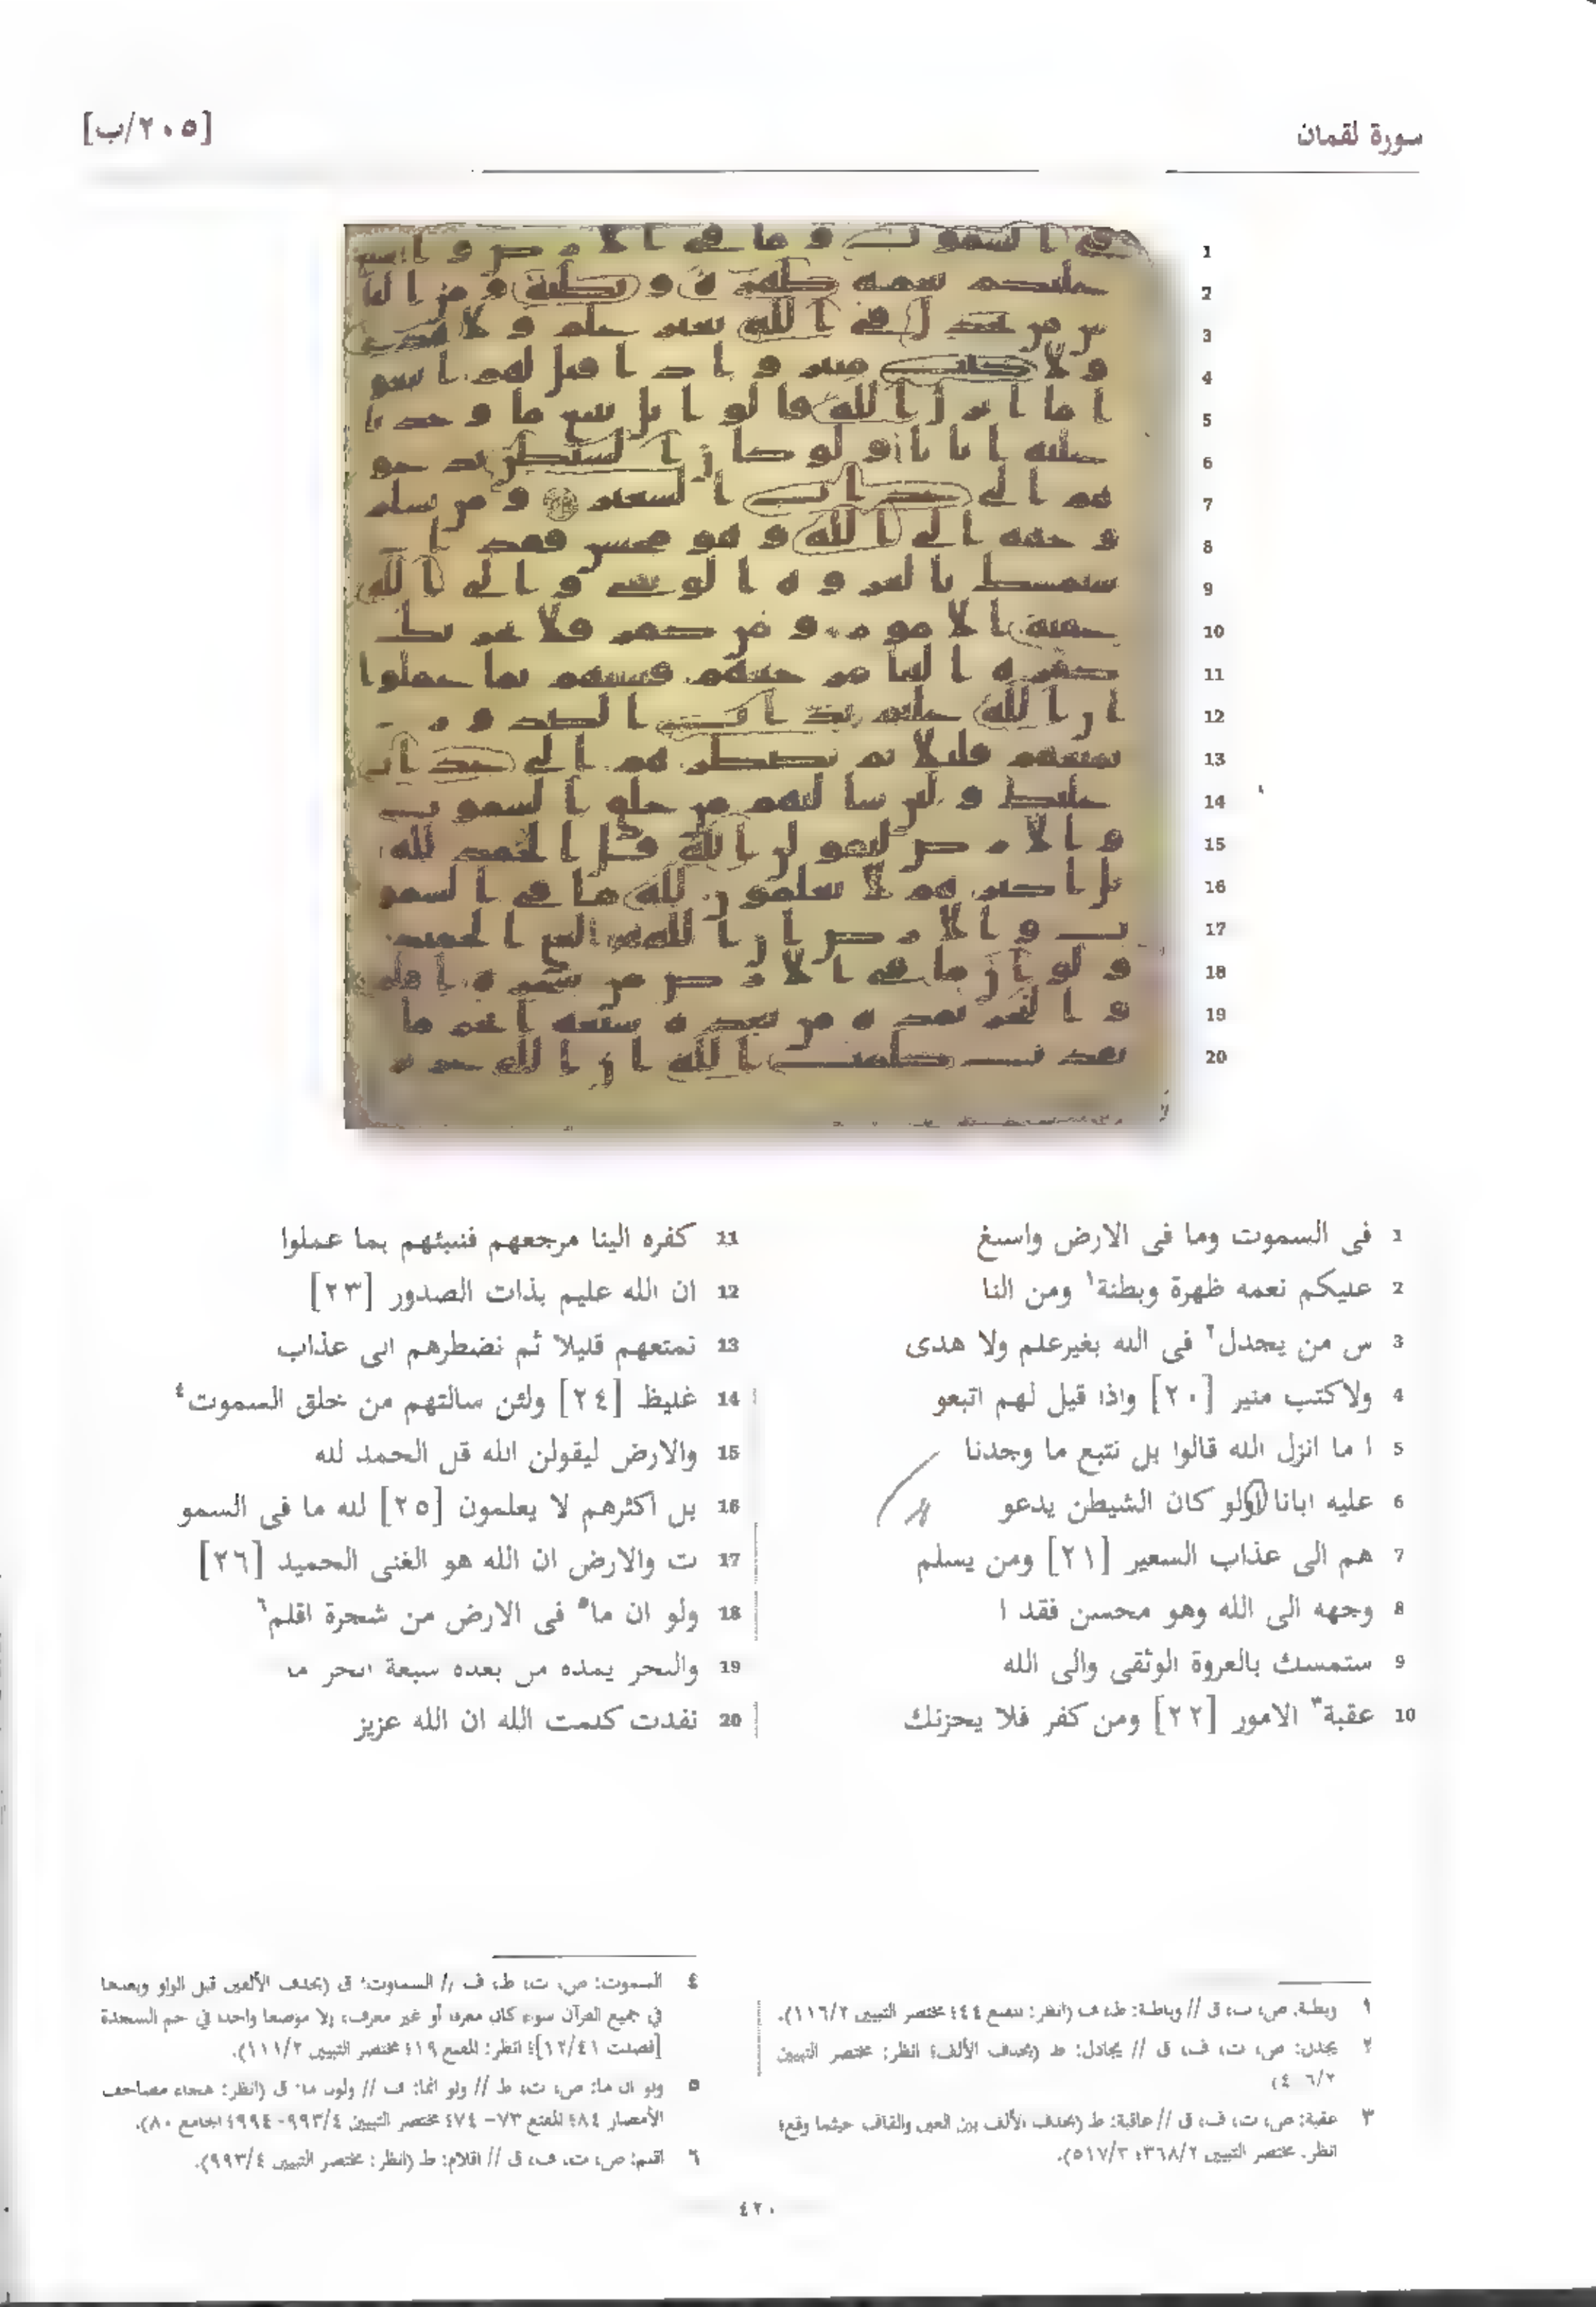 سورة لقمان
[٢٠٥/ب]
1 فى السموت وما فى الارض واسبغ
2 عليكم نعمه ظهرة وبطنة١ ومن النا
3 س من يجدل٢ فى الله بغيرعلم ولا هدى
4 ولاكتب منير [٢٠] واذا قيل لهم اتبعو
5 ا ما انزل الله قالوا بل نتبع ما وجدنا
6 عليه ابانا اولو كان الشيطن يدعو
7 هم الى عذاب السعير [٢١] ومن يسلم
8 وجهه الى الله وهو محسن فقد ا
9 ستمسك بالعروة الوثقى والى الله
10 عقبة٣ الامور [٢٢] ومن كفر فلا يحزنك
11 كفره الينا مرجعهم فننبئهم بما عملوا
12 ان الله عليم بذات الصدور [٢٣]
13 نمتعهم قليلا ثم نضطرهم الى عذاب
14 غليظ [٢٤] ولئن سالتهم من خلق السموت٤
15 والارض ليقولن الله قل الحمد لله
16 بل اكثرهم لا يعلمون [٢٥] لله ما فى السمو
17 ت والارض ان الله هو الغنى الحميد [٢٦]
18 ولو ان ما٥ فى الارض من شجرة اقلم٦
19 والبحر يمده من بعده سبعة ابحر ما
20 نفدت كلمت الله ان الله عزيز
١ وبطنة: ص، ت، ق // وباطنة: ط، ف (انظر: المقنع ٤٤؛ مختصر التبيين ١١٦/٢).
٢ يجدل: ص، ت، ف، ق // يجادل: ط (بحذف الألف؛ انظر: مختصر التبيين
٣ عقبة: ص، ت، ف، ق // عاقبة: ط (بحذف الألف بين العين والقاف حيثما وقع؛
انظر: مختصر التبيين ٣٦٨/٢؛ ٥١٧/٣).
٤ السموت: ص، ت، ط، ف // السماوت: ق (بحذف الألفين قبل الواو وبعدها
في جميع القرآن سوء كان معرف أو غير معرف، إلا موضعا واحدا في حم السجدة
[فصلت ١٢/٤١]؛ انظر: المقنع ١٩؛ مختصر التبيين ١١١/٢).
٥ ولو ان ما: ص، ت، ط // ولو انما: ف // ولون ما: ق (انظر: هجاء مصاحف
الأمصار ٨٤؛ المقنع ٧٣-٧٤؛ مختصر التبيين ٩٩٣/٤-٩٩٤؛ الجامع ٨٠).
٦ اقلم: ص، ت، ف، ق // اقلام: ط (انظر: مختصر التبيين ٩٩٣/٤).
٤٢٠